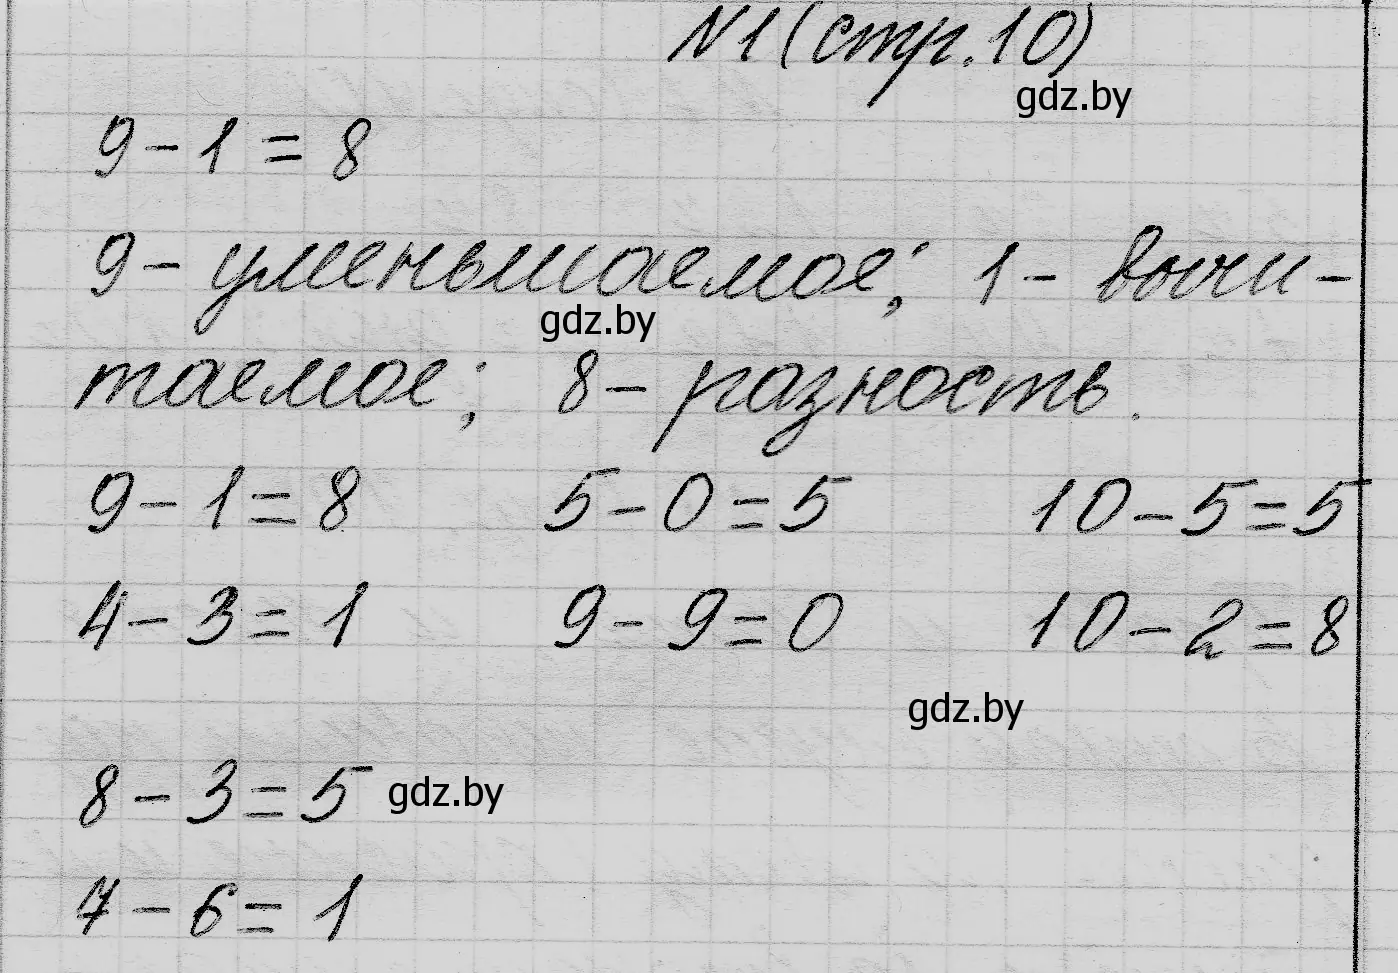 №1 (стр. 10)
gdz.by
9 - 1 = 8
9 - уменьшаемое; 1 - вычи-
gdz.by
таемое; 8 - разность.
9 - 1 = 8 5 - 0 = 5 10 - 5 = 5
4 - 3 = 1 9 - 9 = 0 10 - 2 = 8
gdz.by
8 - 3 = 5 gdz.by
7 - 6 = 1